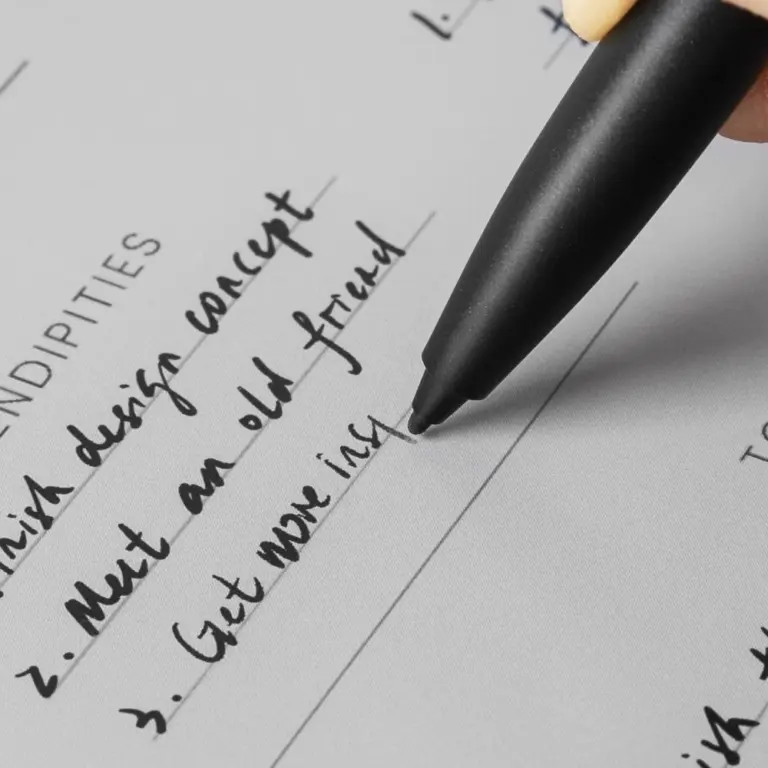 1.
ENDIPITIES
inish design concept
2. Meet an old friend
3. Get more ins
ish